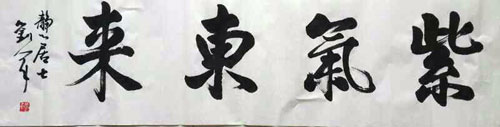 紫氣東来
静居士